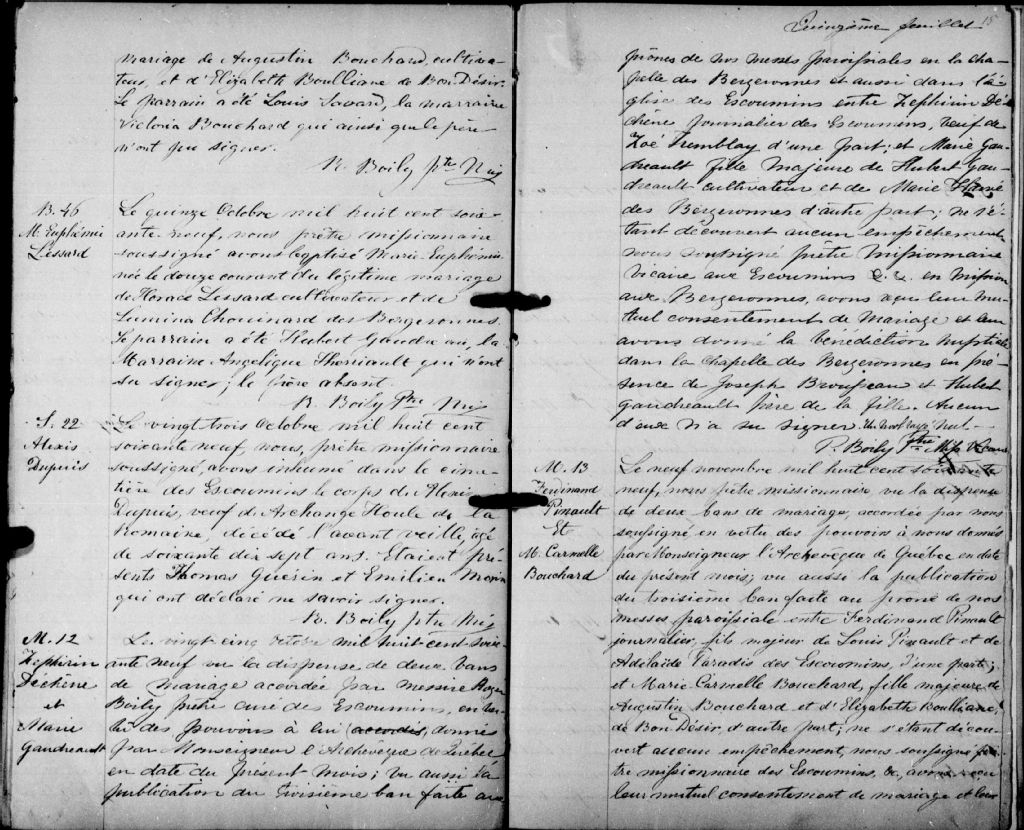 mariage de Augustin Bouchard, cultiva-
teur, et d'Elizabeth Boulliane de Bon Désir.
Le parrain a été Louis Savard, la marraine
Victoria Bouchard qui ainsi que le père
n'ont pu signer.
R. Boily ptre Mis
B. 46
M. Euphémie
Lessard
Le quinze Octobre mil huit cent soix-
ante neuf, nous, prêtre missionnaire
soussigné avons baptisé Marie Euphémie
née le douze courant du légitime mariage
de Horace Lessard cultivateur et de
Lumina Chouinard des Bergeronnes.
Le parrain a été Hubert Gaudreau, la
Marraine Angélique Theriault qui n'ont
su signer; le père absent.
R. Boily Ptre Mis
S. 22
Alexis
Dupuis
Le vingt trois Octobre mil huit cent
soixante neuf, nous, prêtre missionnaire
soussigné, avons inhumé dans le cime-
tière des Escoumins le corps de Alexis
Dupuis, veuf d'Archange Houle de la
Romaine, décédé l'avant veille, agé
de soixante dix sept ans. Etaient pré-
sents Thomas Guerin et Emilien Morin
qui ont déclaré ne savoir signer.
R. Boily ptre Mis
M. 12
Zephirin
Déchêne
et
Marie
Gaudreault
Le vingt cinq octobre mil huit cent soix-
ante neuf vu la dispense de deux bans
de mariage acordée par messire Roger
Boily prêtre curé des Escoumins, en ver-
tu des pouvoirs à lui (accordés) donnés
par Monseigneur l'Archevêque de Québec
en date du présent mois; vu aussi la
publication du troisième ban faite aux
Quinzième feuillet 15
prônes de nos messes paroissiales en la cha-
pelle des Bergeronnes et aussi dans l'é-
glise des Escoumins entre Zephirin Dé-
chêne journalier des Escoumins, veuf de
Zoé Tremblay d'une part; et Marie Gau-
dreault fille majeure de Hubert Gau-
dreault cultivateur et de Marie
des Bergeronnes d'autre part; ne s'é-
tant découvert aucun empêchement,
nous soussigné prêtre missionnaire
Vicaire aux Escoumins &. &. en Mission
aux Bergeronnes, avons reçu leur mu-
tuel consentement de Mariage et leur
avons donné la bénédiction nuptiale
dans la Chapelle des Bergeronnes en pré-
sence de Joseph Brousseau et Hubert
Gaudreault père de la fille. Aucun
d'eux n'a su signer. nul.
P. Boily Ptre Miss
M. 13
Ferdinand
Pinault
Et
M. Carmelle
Bouchard
Le neuf novembre mil huit cent soixante
neuf, nous prêtre missionnaire vu la dispense
de deux bans de mariage, accordée par nous
soussigné en vertu des pouvoirs à nous donnés
par Monseigneur l'Archevêque de Québec en date
du présent mois; vu aussi la publication
du troisième ban faite au prône de nos
messes paroissiale entre Ferdinand Pinault
journalier, fils majeur de Louis Pinault et de
Adélaïde Paradis des Escoumins, d'une part;
et Marie Carmelle Bouchard, fille majeure de
Augustin Bouchard et d'Elizabeth Boulliane,
de Bon Désir, d'autre part; ne s'étant décou-
vert aucun empêchement, nous soussigné prê-
tre missionnaire des Escoumins, &, avons reçu
leur mutuel consentement de mariage et leur